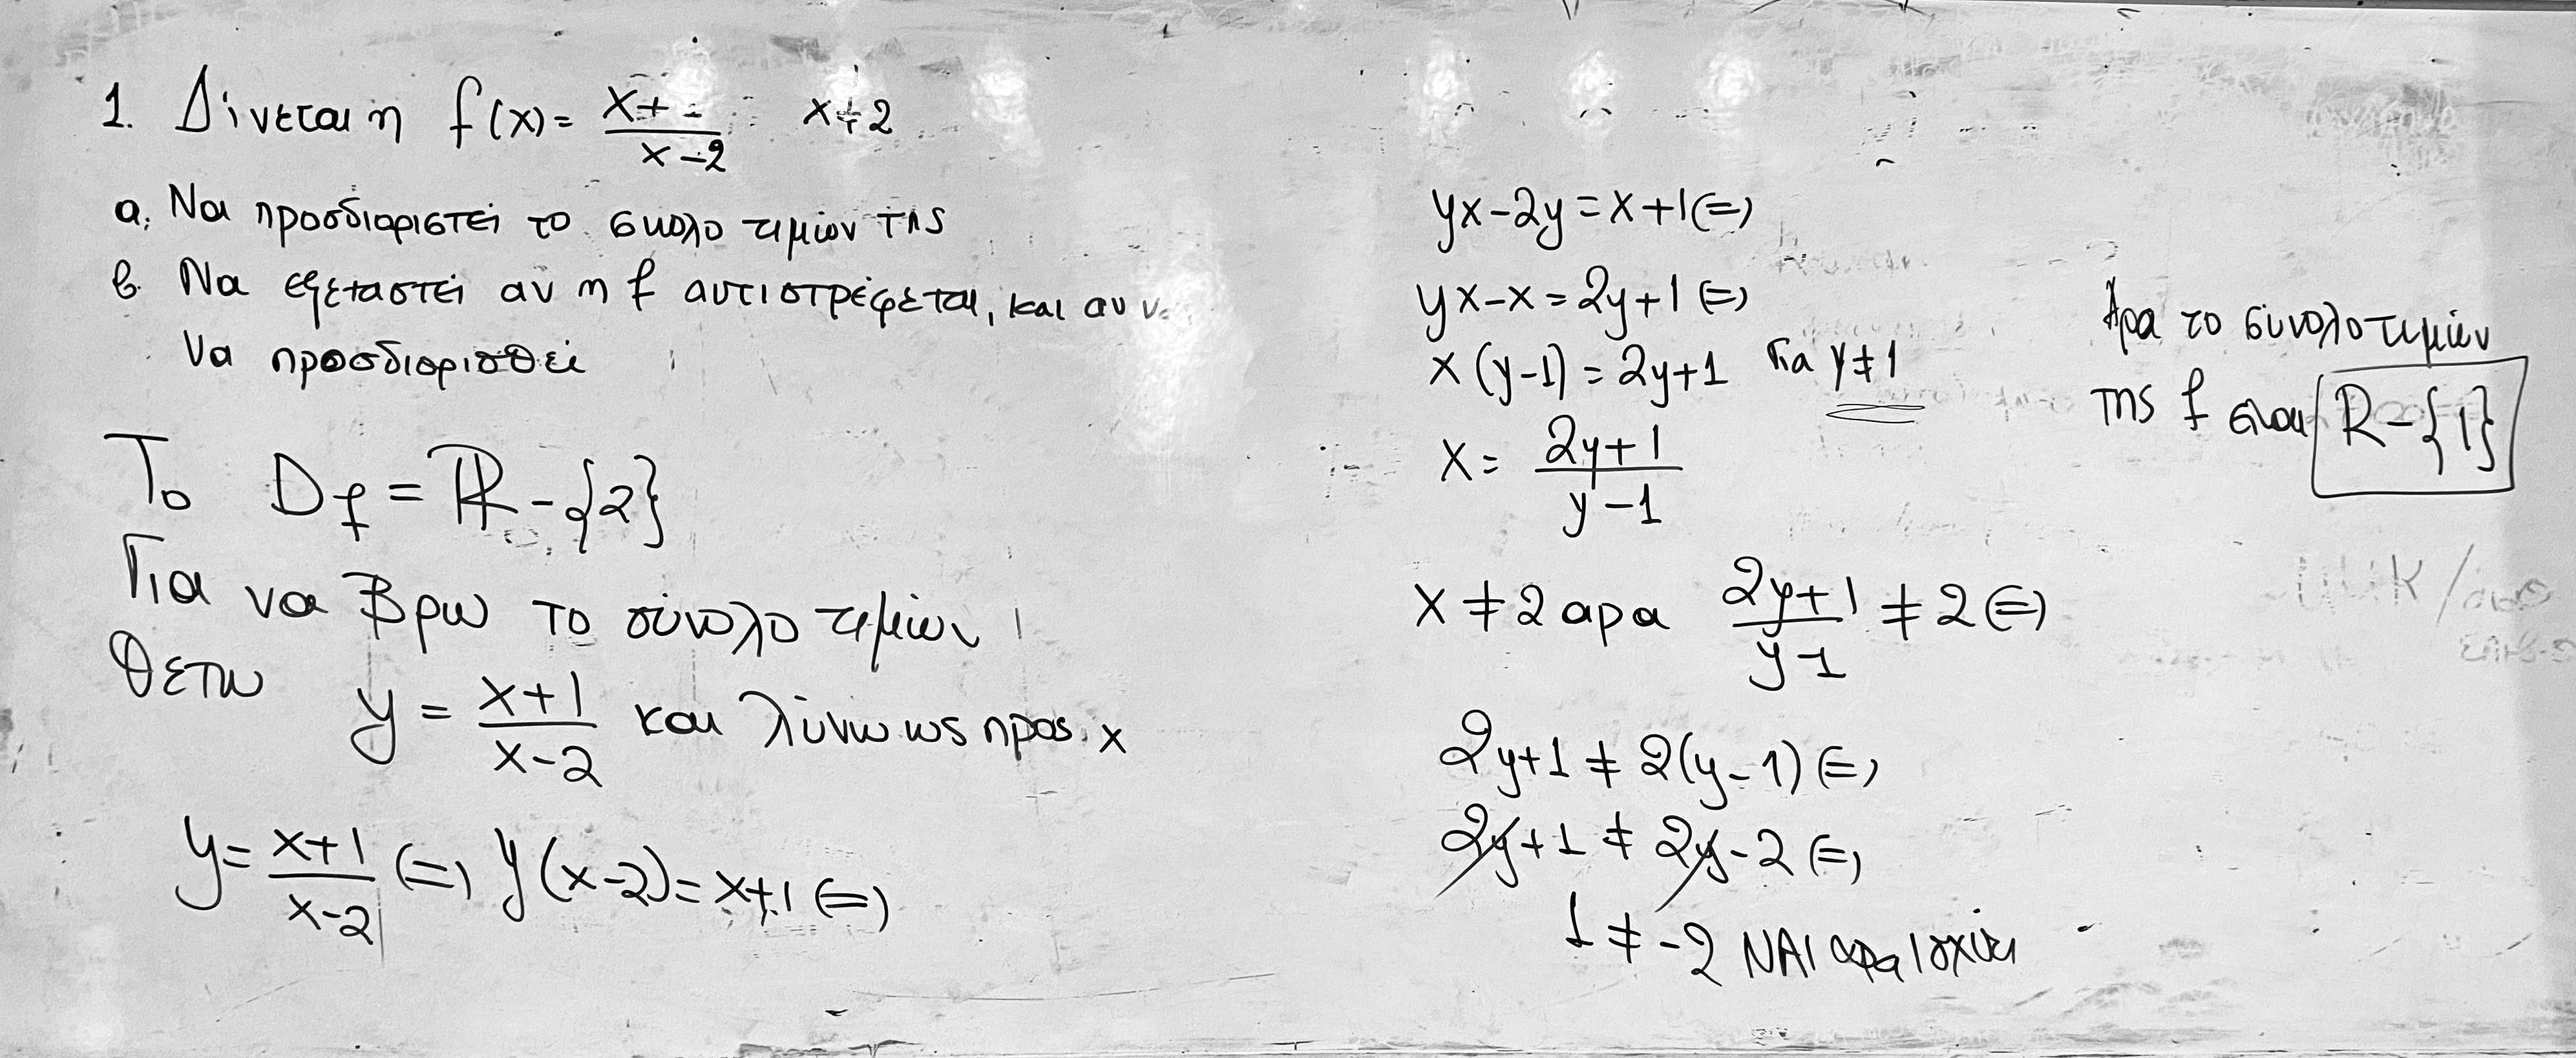 1. Δίνεται η f(x) = (x+)/(x-2) x≠2
a. Να προσδιοριστεί το συνολο τιμών της
β. Να εξεταστεί αν η f αντιστρέφεται, και αν
να προσδιορισθεί
Το Df = ℝ-{2}
Για να βρω το σύνολο τιμών
θετω y = (x+1)/(x-2) και λύνω ως προς x
y = (x+1)/(x-2) (=) y(x-2) = x+1 (=)
yx-2y = x+1 (=)
yx-x = 2y+1 (=)
x(y-1) = 2y+1 Για y≠1
x = (2y+1)/(y-1)
x≠2 αρα (2y+1)/(y-1) ≠ 2 (=)
2y+1 ≠ 2(y-1) (=)
2y+1 ≠ 2y-2 (=)
1 ≠ -2 ΝΑΙ αρα ισχύει
Άρα το σύνολο τιμών
της f είναι R-{1}